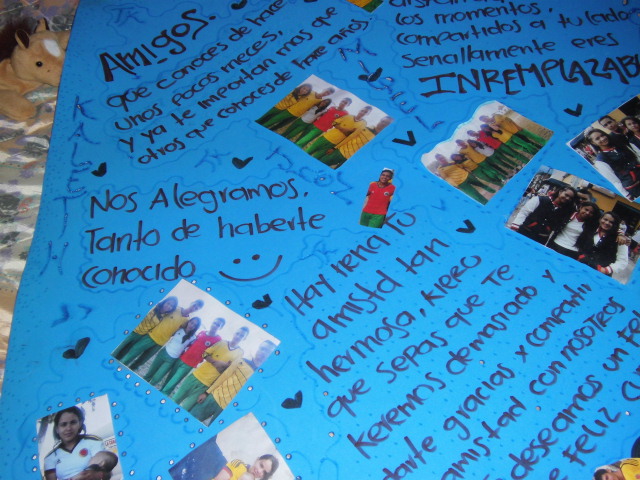 Amigos.
que conoces de hace
unos pocos meces,
y ya te importan mas que
otros que conoces de hace años.
los momentos,
compartidos a tu lado
Senallamente eres
INREMPLAZAB
KALETH
MIGUEL
Nos Alegramos,
Tanto de haberte
conocido
Hay nena Tu
amistd tan
hermosa, kiero
que sepas que Te
Keremos demasiado y
darte gracias x compartir
amistad con nosotros
deseamos un
Feliz